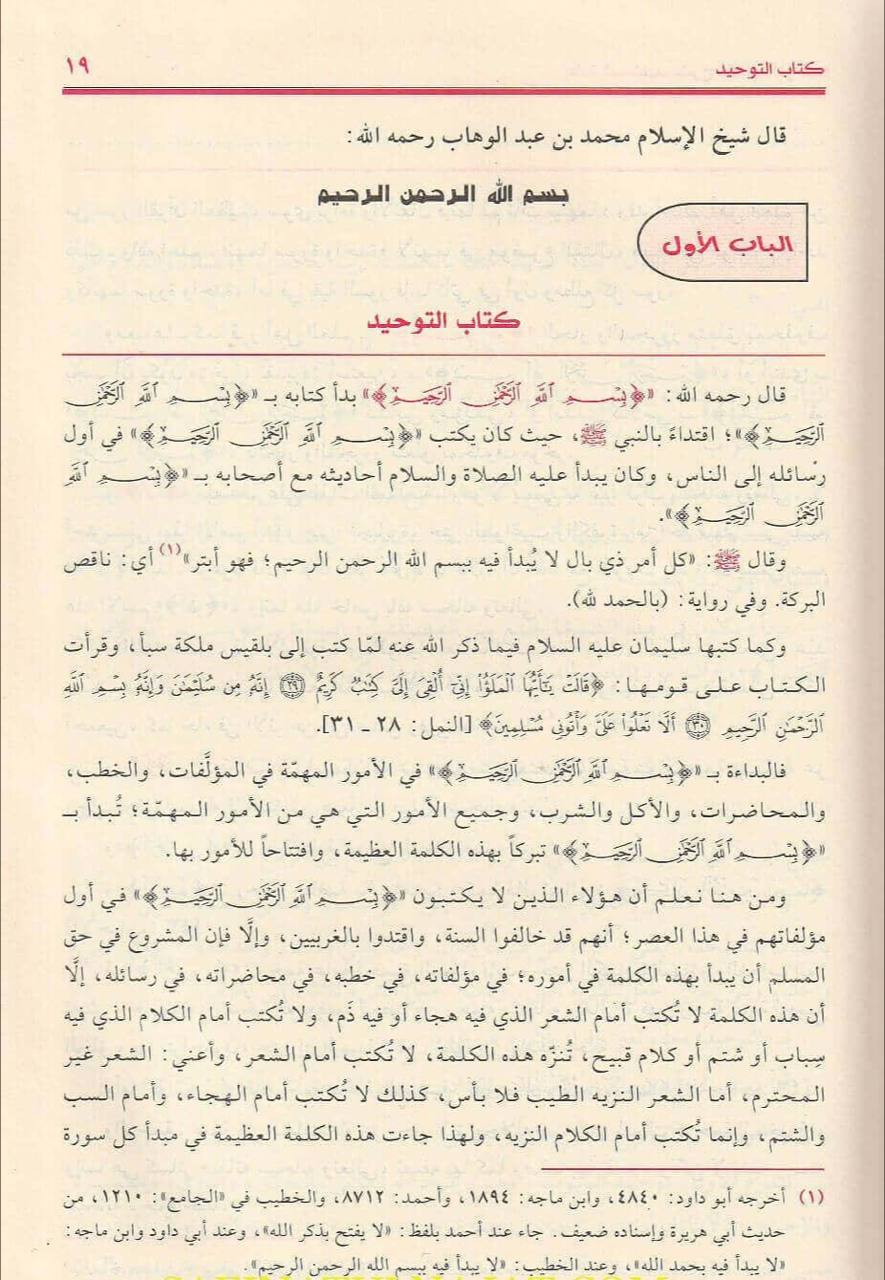 كتاب التوحيد ١٩
قال شيخ الإسلام محمد بن عبد الوهاب رحمه الله:
بسم الله الرحمن الرحيم
الباب الأول
كتاب التوحيد
قال رحمه الله: «﴿بِسْمِ ٱللَّهِ ٱلرَّحْمَٰنِ ٱلرَّحِيمِ﴾» بدأ كتابه بـ «﴿بِسْمِ ٱللَّهِ ٱلرَّحْمَٰنِ
ٱلرَّحِيمِ﴾»؛ اقتداءً بالنبي ﷺ، حيث كان يكتب «﴿بِسْمِ ٱللَّهِ ٱلرَّحْمَٰنِ ٱلرَّحِيمِ﴾» في أول
رسائله إلى الناس، وكان يبدأ عليه الصلاة والسلام أحاديثه مع أصحابه بـ «﴿بِسْمِ ٱللَّهِ
ٱلرَّحْمَٰنِ ٱلرَّحِيمِ﴾».
وقال ﷺ: «كل أمر ذي بال لا يُبدأ فيه ببسم الله الرحمن الرحيم؛ فهو أبتر»(١) أي: ناقص
البركة. وفي رواية: (بالحمد لله).
وكما كتبها سليمان عليه السلام فيما ذكر الله عنه لمّا كتب إلى بلقيس ملكة سبأ، وقرأت
الكتاب على قومها: ﴿قَالَتْ يَٰٓأَيُّهَا ٱلْمَلَؤُا۟ إِنِّىٓ أُلْقِىَ إِلَىَّ كِتَٰبٌ كَرِيمٌ ٢٩ إِنَّهُۥ مِن سُلَيْمَٰنَ وَإِنَّهُۥ بِسْمِ ٱللَّهِ
ٱلرَّحْمَٰنِ ٱلرَّحِيمِ ٣٠ أَلَّا تَعْلُوا۟ عَلَىَّ وَأْتُونِى مُسْلِمِينَ﴾ [النمل: ٢٨ ـ ٣١].
فالبداءة بـ «﴿بِسْمِ ٱللَّهِ ٱلرَّحْمَٰنِ ٱلرَّحِيمِ﴾» في الأمور المهمّة في المؤلَّفات، والخطب،
والمحاضرات، والأكل والشرب، وجميع الأمور التي هي من الأمور المهمّة؛ تُبدأ بـ
«﴿بِسْمِ ٱللَّهِ ٱلرَّحْمَٰنِ ٱلرَّحِيمِ﴾» تبركاً بهذه الكلمة العظيمة، وافتتاحاً للأمور بها.
ومن هنا نعلم أن هؤلاء الذين لا يكتبون «﴿بِسْمِ ٱللَّهِ ٱلرَّحْمَٰنِ ٱلرَّحِيمِ﴾» في أول
مؤلفاتهم في هذا العصر؛ أنهم قد خالفوا السنة، واقتدوا بالغربيين، وإلَّا فإن المشروع في حق
المسلم أن يبدأ بهذه الكلمة في أموره؛ في مؤلفاته، في خطبه، في محاضراته، في رسائله، إلَّا
أن هذه الكلمة لا تُكتب أمام الشعر الذي فيه هجاء أو فيه ذَم، ولا تُكتب أمام الكلام الذي فيه
سِباب أو شتم أو كلام قبيح، تُنزّه هذه الكلمة، لا تُكتب أمام الشعر، وأعني: الشعر غير
المحترم، أما الشعر النزيه الطيب فلا بأس، كذلك لا تُكتب أمام الهجاء، وأمام السب
والشتم، وإنما تُكتب أمام الكلام النزيه، ولهذا جاءت هذه الكلمة العظيمة في مبدأ كل سورة
(١) أخرجه أبو داود: ٤٨٤٠، وابن ماجه: ١٨٩٤، وأحمد: ٨٧١٢، والخطيب في «الجامع»: ١٢١٠، من
حديث أبي هريرة وإسناده ضعيف. جاء عند أحمد بلفظ: «لا يفتح بذكر الله»، وعند أبي داود وابن ماجه:
«لا يبدأ فيه بحمد الله»، وعند الخطيب: «لا يبدأ فيه ببسم الله الرحمن الرحيم».